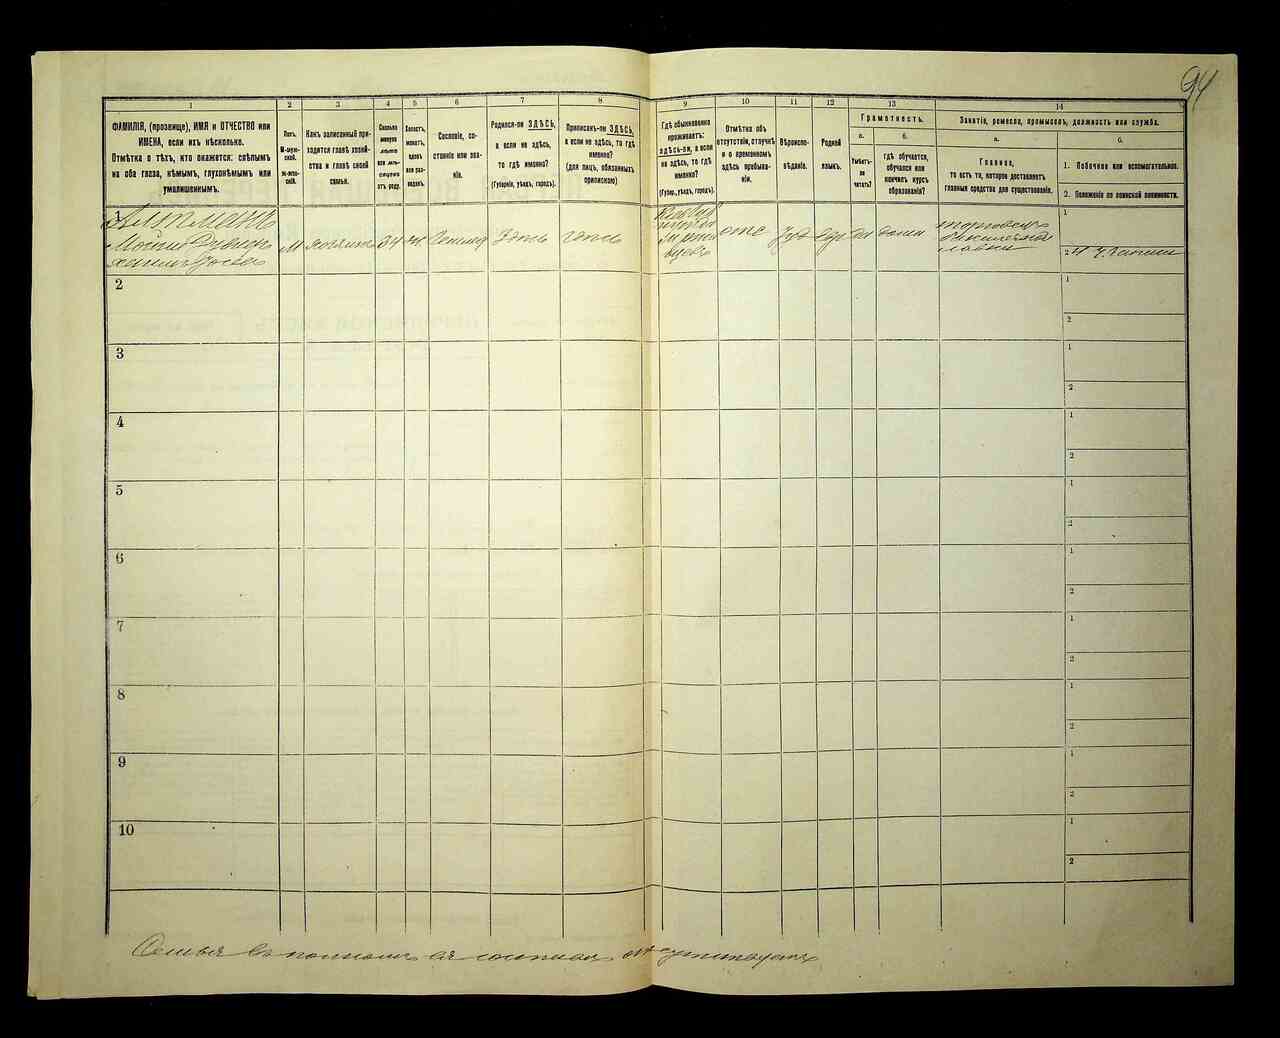 94
1 2 3 4 5 6 7 8 9 10 11 12 13 14
ФАМИЛІЯ, (прозвище), ИМЯ и ОТЧЕСТВО или
ИМЕНА, если ихъ нѣсколько.
Отмѣтка о тѣхъ, кто окажется: слѣпымъ
на оба глаза, нѣмымъ, глухонѣмымъ или
умалишеннымъ.
Полъ.
М-муж-
ской.
Ж-жен-
скій.
Какъ записанный при-
ходится главѣ хозяй-
ства и главѣ своей
семьи.
Сколько
минуло
лѣтъ
или мѣ-
сяцевъ
отъ роду.
Холостъ,
женатъ,
вдовъ
или раз-
веденъ.
Сословіе, со-
стояніе или зва-
ніе.
Родился-ли ЗДѢСЬ,
а если не здѣсь,
то гдѣ именно?
(Губернія, уѣздъ, городъ).
Приписанъ-ли ЗДѢСЬ,
а если не здѣсь, то гдѣ
именно?
(для лицъ, обязанныхъ
припискою)
Гдѣ обыкновенно
проживаетъ:
здѣсь-ли, а если
не здѣсь, то гдѣ
именно?
(Губер., уѣздъ, городъ).
Отмѣтка объ
отсутствіи, отлучкѣ
и о временномъ
здѣсь пребыва-
ніи.
Вѣроиспо-
вѣданіе.
Родной
языкъ.
Грамотность.
а.
Умѣетъ-
ли
читать?
б.
гдѣ обучается,
обучался или
кончилъ курсъ
образованія?
Занятіе, ремесло, промыселъ, должность или служба.
а.
Главное,
то есть то, которое доставляетъ
главныя средства для существованія.
б.
1. Побочное или вспомогательное.
2. Положеніе по воинской повинности.
1
Альтманъ
М
хозяинъ
34
ж
здѣсь
здѣсь
отс
Іуд
евр
да
дома
лавки
1
2
2
1
2
3
1
2
4
1
2
5
1
2
6
1
2
7
1
2
8
1
2
9
1
2
10
1
2
Семья въ полномъ ея составѣ отсутствуетъ